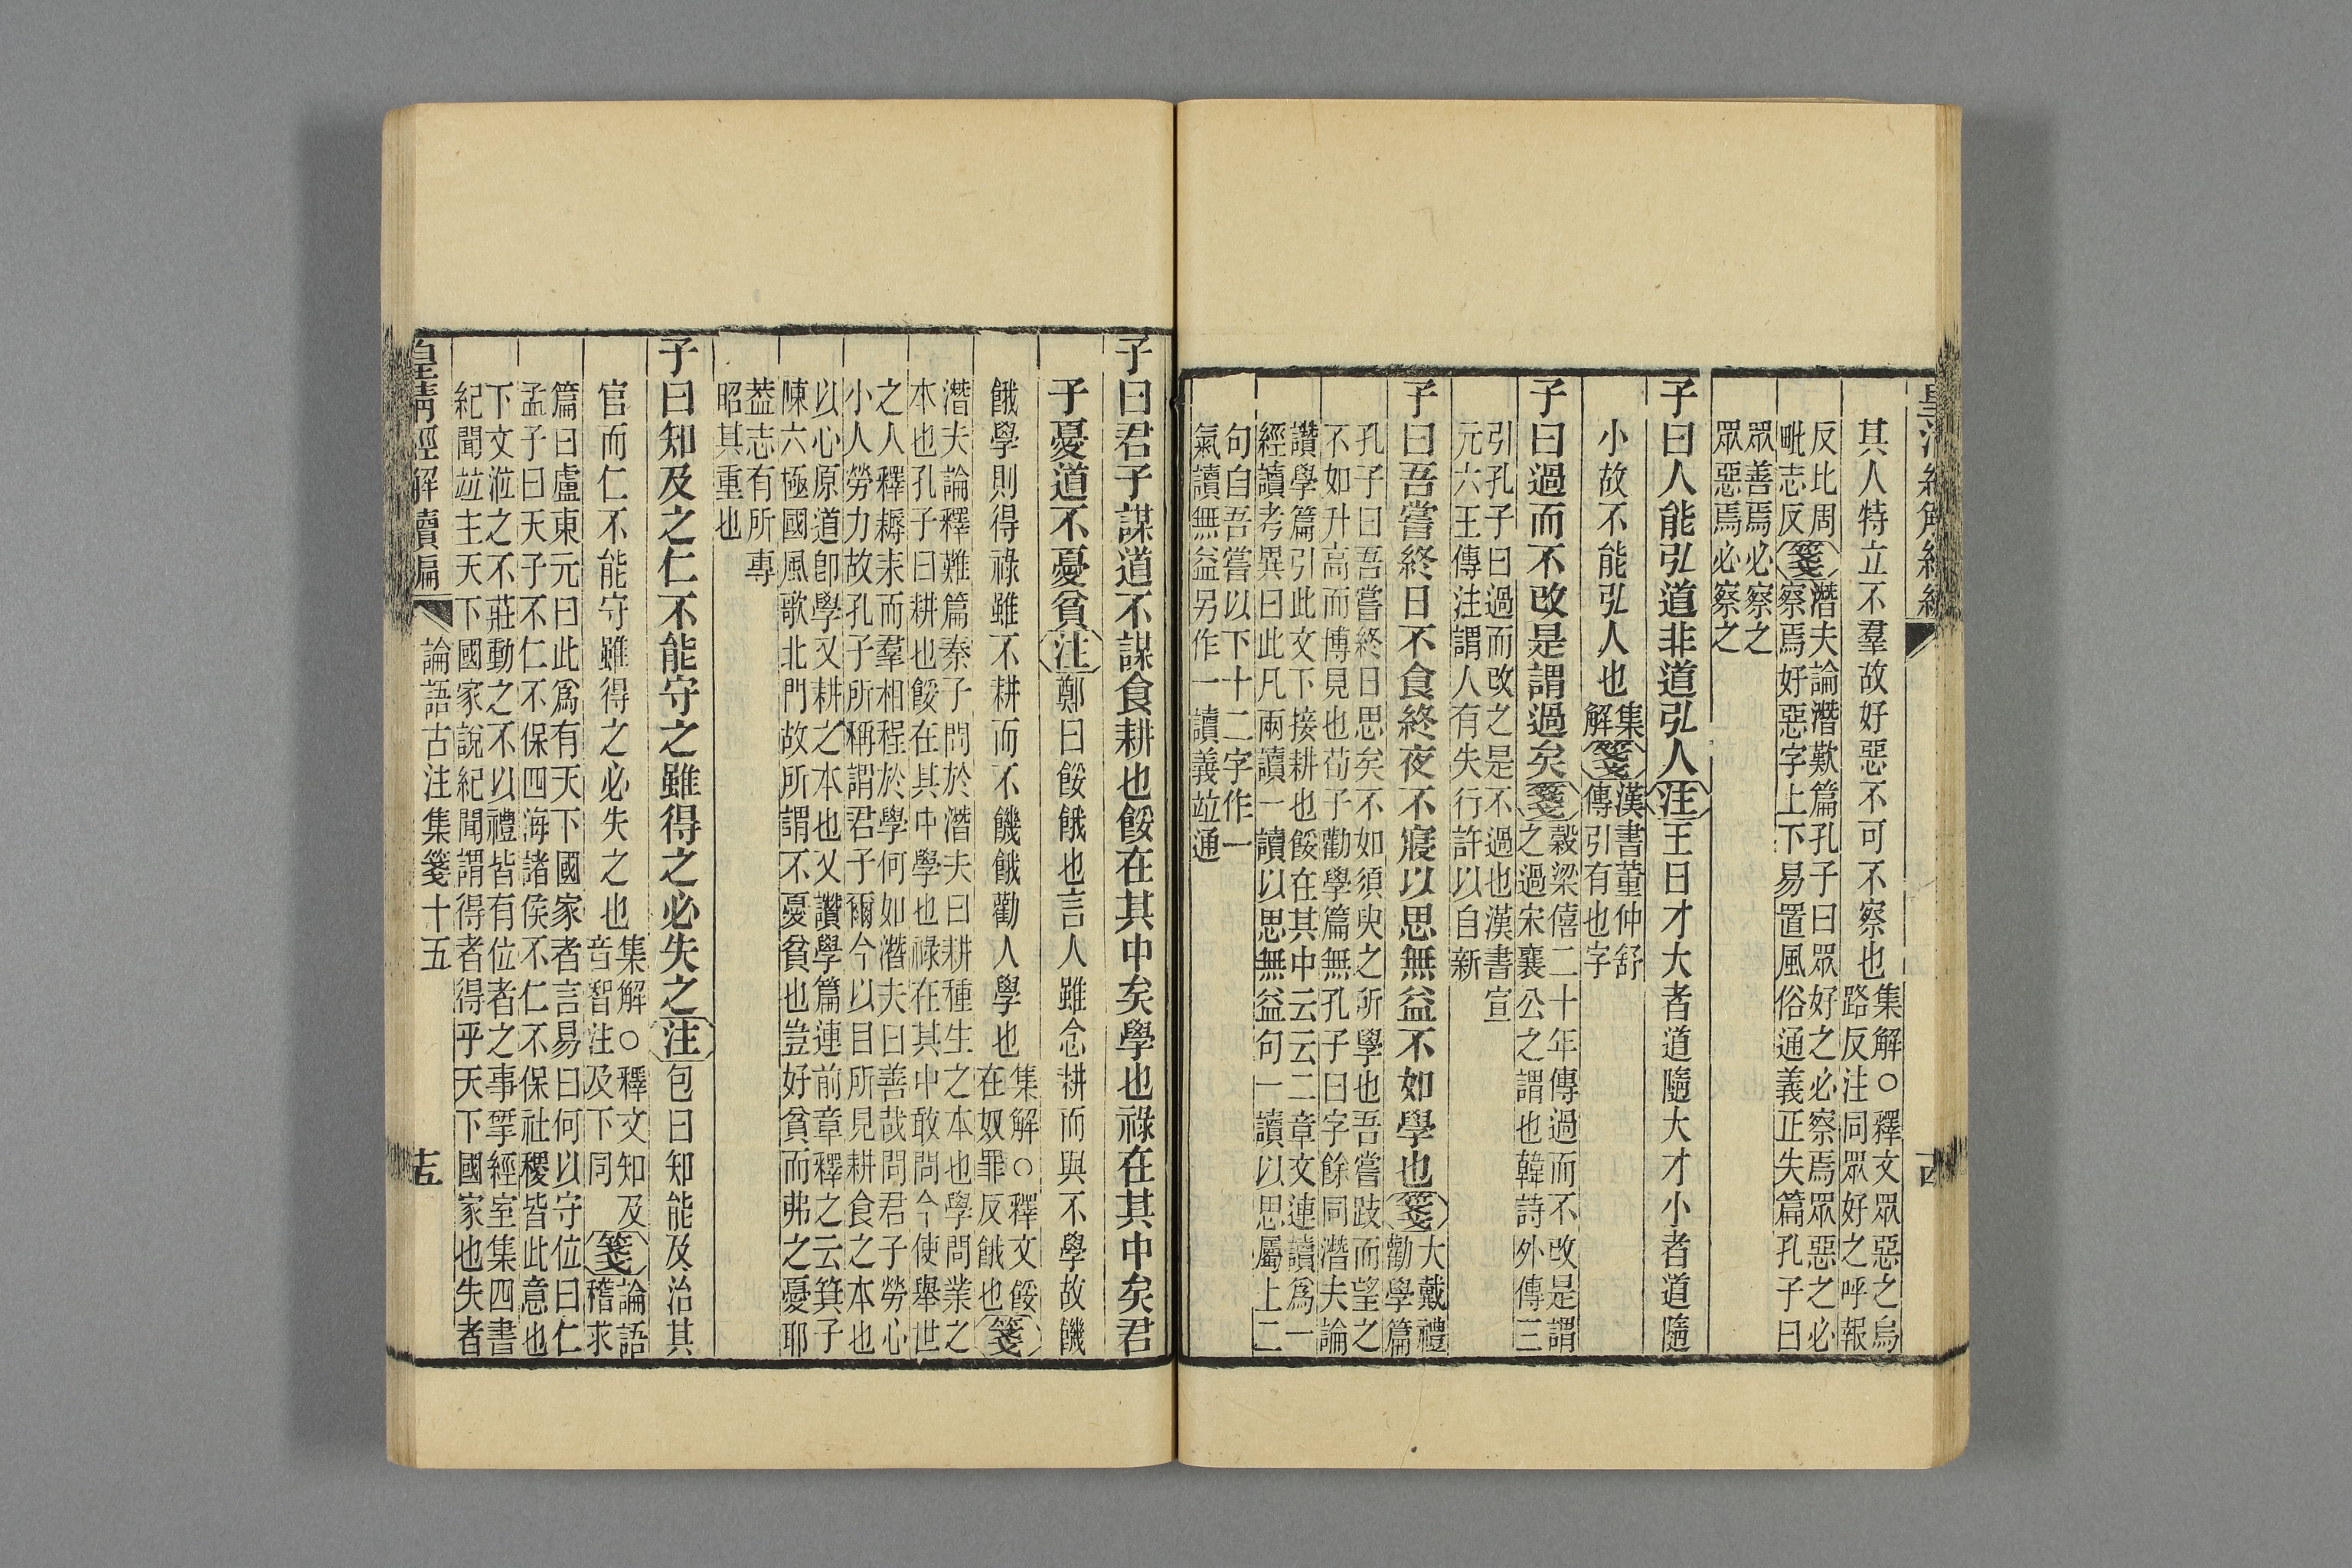 皇清經解續編
十四
其人特立不羣故好惡不可不察也集解○釋文眾惡之烏路反注同眾好之呼報
反比周毗志反箋潛夫論潛歎篇孔子曰眾好之必察焉眾惡之必察焉好惡字上下易置風俗通義正失篇孔子曰
眾善焉必察之眾惡焉必察之
子曰人能弘道非道弘人注王曰才大者道隨大才小者道隨
小故不能弘人也集解箋漢書董仲舒傳引有也字
子曰過而不改是謂過矣箋穀梁僖二十年傳過而不改是謂之過宋襄公之謂也韓詩外傳三
引孔子曰過而改之是不過也漢書宣元六王傳注謂人有失行許以自新
子曰吾嘗終日不食終夜不寢以思無益不如學也箋大戴禮勸學篇
孔子曰吾嘗終日思矣不如須臾之所學也吾嘗跂而望之不如升高而博見也荀子勸學篇無孔子曰字餘同潛夫論
讚學篇引此文下接耕也餒在其中云云二章文連讀爲一經讀考異曰此凡兩讀一讀以思無益句一讀以思屬上二
句自吾嘗以下十二字作一氣讀無益另作一讀義竝通
子曰君子謀道不謀食耕也餒在其中矣學也祿在其中矣君
子憂道不憂貧注鄭曰餒餓也言人雖念耕而與不學故饑
餓學則得祿雖不耕而不饑餓勸人學也集解○釋文餒在奴罪反餓也箋
潛夫論釋難篇秦子問於潛夫曰耕種生之本也學問業之本也孔子曰耕也餒在其中學也祿在其中敢問今使舉世
之人釋耨耒而羣相程於學何如潛夫曰善哉問君子勞心小人勞力故孔子所稱謂君子爾今以目所見耕食之本也
以心原道卽學又耕之本也又讚學篇連前章釋之云箕子陳六極國風歌北門故所謂不憂貧也豈好貧而弗之憂耶
葢志有所專昭其重也
子曰知及之仁不能守之雖得之必失之注包曰知能及治其
官而仁不能守雖得之必失之也集解○釋文知及音智注及下同箋論語稽求
篇曰盧東元曰此爲有天下國家者言易曰何以守位曰仁孟子曰天子不仁不保四海諸侯不仁不保社稷皆此意也
下文涖之不莊動之不以禮皆有位者之事揅經室集四書紀聞竝主天下國家說紀聞謂得者得乎天下國家也失者
皇清經解續編
論語古注集箋十五
十五